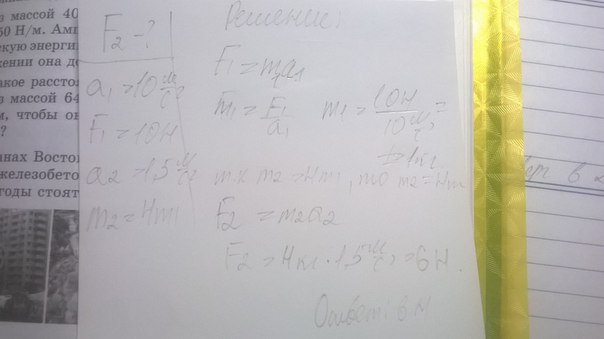 з массой 40
50 Н/м. Амп
скую энерги
жении она до
акое расстоя
з массой 64
м, чтобы он
?
анах Восто
железобето
годы стоят
F2 - ?
a1 = 10 м/с²
F1 = 10Н
a2 = 1,5 м/с²
m2 = 4m1
Решение:
F1 = m1a1
m1 = F1/a1 m1 = 10Н/10 м/с² =
= 1 кг
т.к m2 = 4m1, то m2 = 4кг
F2 = m2a2
F2 = 4кг · 1,5 м/с² = 6Н.
Ответ: 6 Н